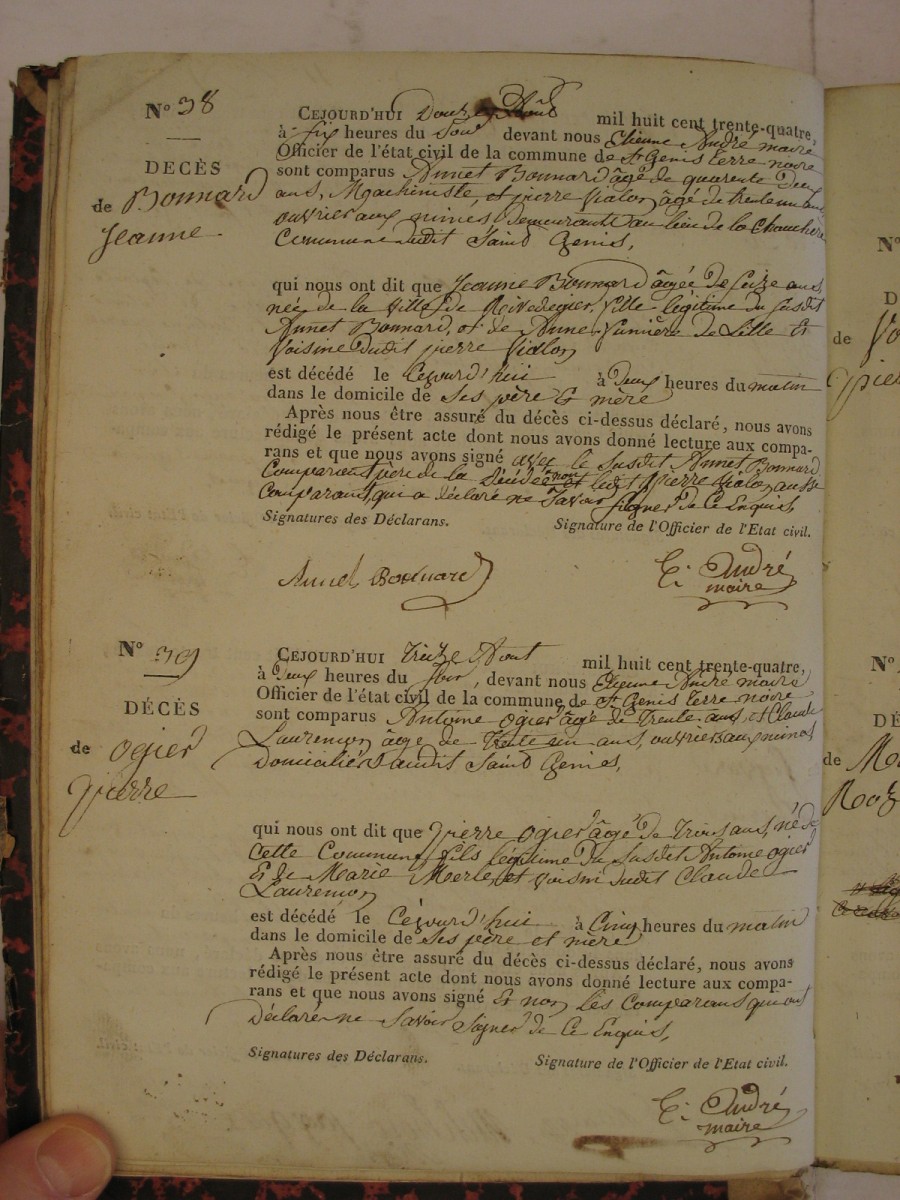 N° 38
DECÈS
de Bonnard
Jeanne
CEJOURD'HUI Douze Août mil huit cent trente-quatre,
à six heures du Soir devant nous Etienne André maire
Officier de l'état civil de la commune de St Genis terre noire
sont comparus Annet Bonnard âgé de quarente Deux
ans, Machiniste, et pierre Vialon âgé de trente un ans
ouvrier aux mines Demeurants au lieu de la Chauchère
Commune dudit Saint Genis,
qui nous ont dit que Jeanne Bonnard âgée De seize ans
née de la ville de Rivedegier, fille légitime du susdit
Annet Bonnard, et de Anne De Lille et
Voisine dudit pierre Vialon
est décédé le Cejourd'hui à Deux heures du matin
dans le domicile de ses père et mère
Après nous être assuré du décès ci-dessus déclaré, nous avons
rédigé le présent acte dont nous avons donné lecture aux compa-
rans et que nous avons signé avec le susdit Annet Bonnard
Comparant père de la Décédée et non ledit pierre Vialon aussi
Comparant, qui a déclaré ne Savoir Signer de Ce Enquis,
Signatures des Déclarans. Signature de l'Officier de l'Etat civil.
Annet Bonnard E. André
maire
N° 39
DÉCÈS
de ogier
pierre
CEJOURD'HUI treize Aout mil huit cent trente-quatre,
à Deux heures du soir, devant nous Etienne André maire
Officier de l'état civil de la commune de St Genis terre noire
sont comparus Antoine ogier âgé de Trente ans, et Claude
Laurençon âgé de Trente six ans, ouvriers aux mines
Domiciliés audit Saint Genis,
qui nous ont dit que pierre ogier âgé De Trois ans, né de
Cette Commune fils légitime du susdit Antoine ogier
et de Marie Merle, et voisin dudit Claude
Laurençon
est décédé le Cejourd'hui à Cinq heures du matin
dans le domicile de ses père et mère
Après nous être assuré du décès ci-dessus déclaré, nous avons
rédigé le présent acte dont nous avons donné lecture aux compa-
rans et que nous avons signé et non les Comparans qui ont
Déclaré ne Savoir Signer de Ce Enquis,
Signatures des Déclarans. Signature de l'Officier de l'Etat civil.
E. André
maire
N°
de
N°
DÉ
de